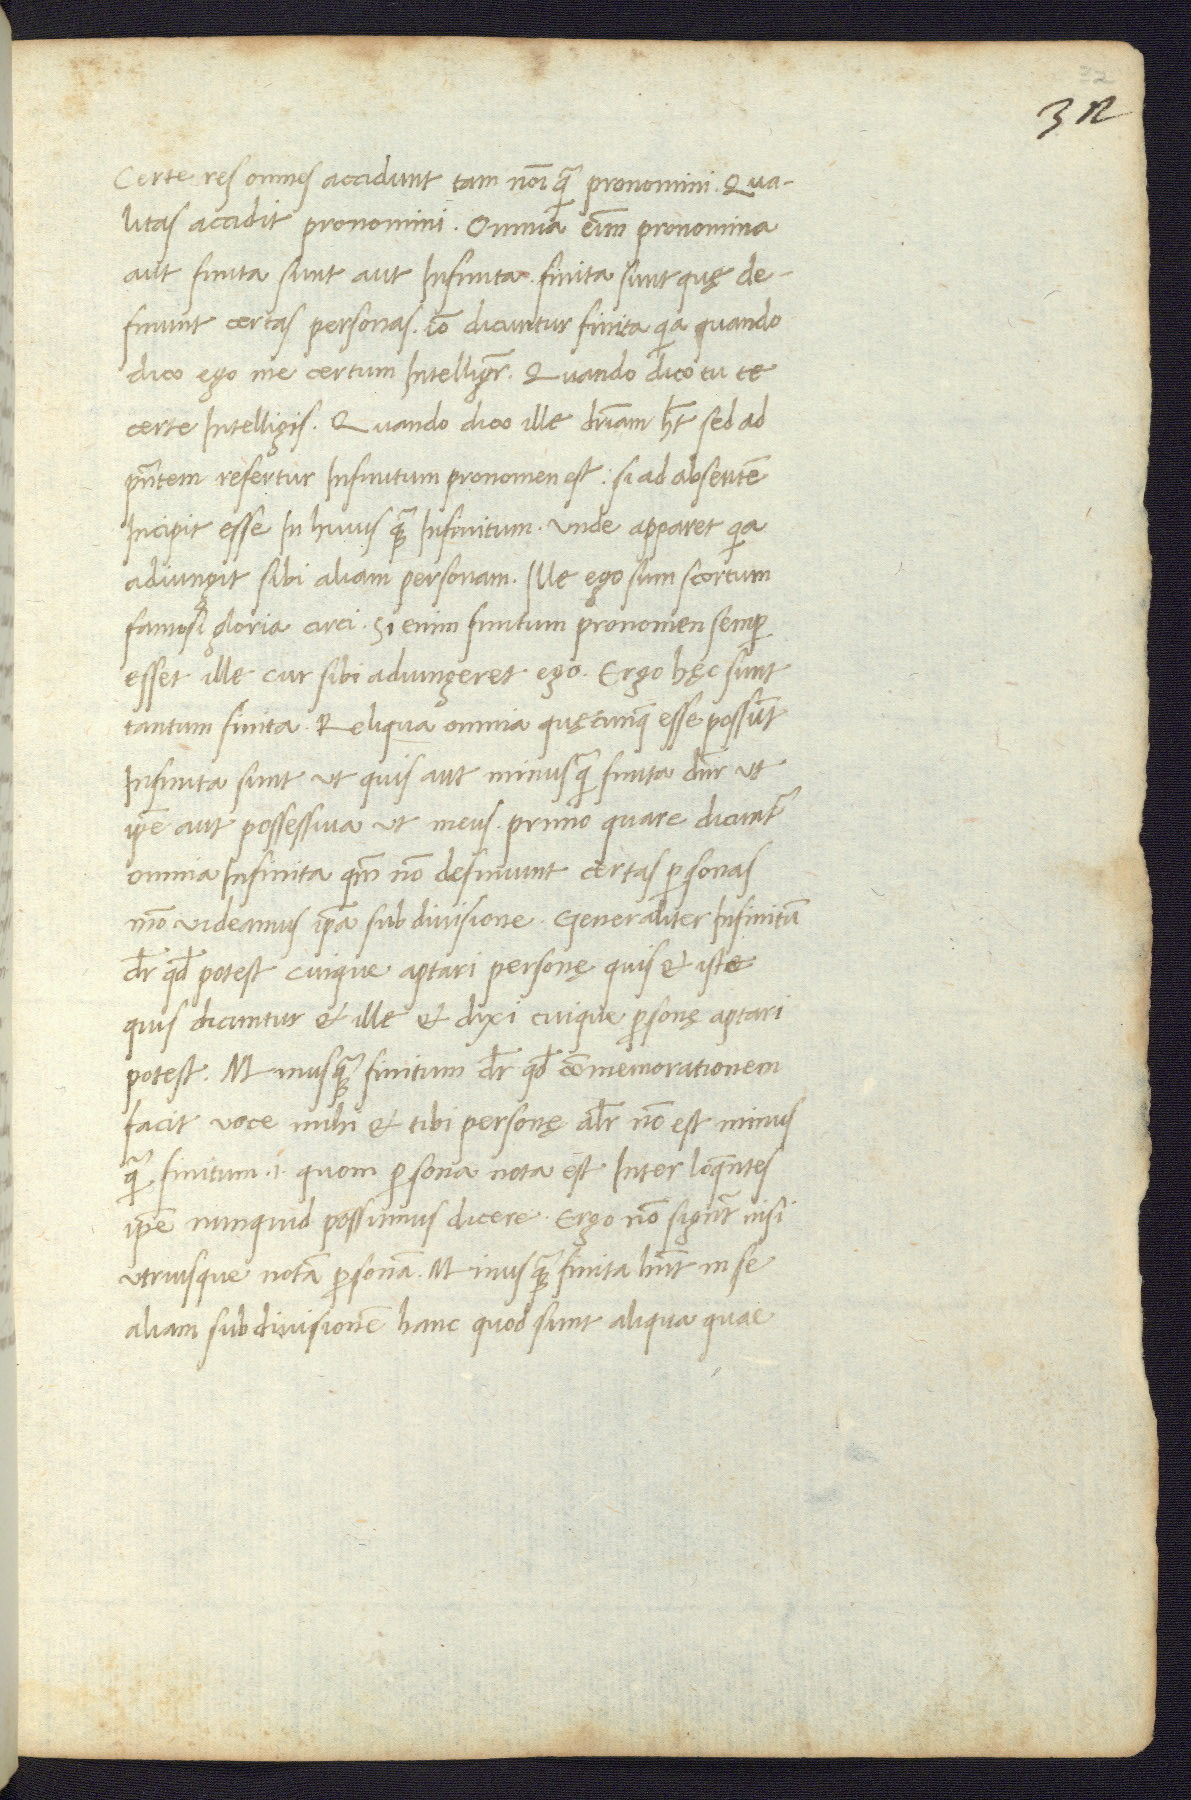 32
32
Certe res omnes accidunt tam nōi q̄ pronomini. Qua-
litas accidit pronomini. Omnia eīm pronomina
aut finita sunt aut Infinita. finita sunt quę de-
finiunt certas personas. iō dicuntur finita qia quando
dico ego me certum Intelligr̄. Quando dico tu te
certe Intelligis. Quando dico ille dr̄iam ht̄ sed ad
pn̄tem refertur Infinitum pronomen est: si ad absentē
Incipit esse In huius q̄ Infinitum. Vnde apparet qia
adiungit sibi aliam personam. Ille ego sum scortum
famosi gloria circi. Si enim finitum pronomen semp̄
esset ille cur sibi adiungeret ego. Ergo hęc sunt
tantum finita. Reliqua omnia quęcunq̄ esse possūt
Infinita sunt ut quis aut minusq̄ finita dn̄r ut
ip̄e aut possessiua ut meus. primo quare dicunt᷑
omnia Infinita qm̄ nō definiunt certas p̱sonas
mō uideamus ip̄a subdiuisione. Generaliter Infinitū
dr̄ qd̄ potest cuique aptari personę quis & iste
quis dicuntur & ille & dixi cuique p̱sonę aptari
potest. Minusq̄ finitum dr̄ qd̄ cōmemorationem
facit uoce mihi & tibi personę alr̄ nō est minus
q̄ finitum .i. quom p̱sona nota est Inter loq̄ntes
ip̄e nunquid possumus dicere. Ergo nō signt̄ nisi
utriusque notā p̱sonā. Minusq̄ finita hn̄t in se
aliam subdiuisionē hanc quod sunt aliqua quae